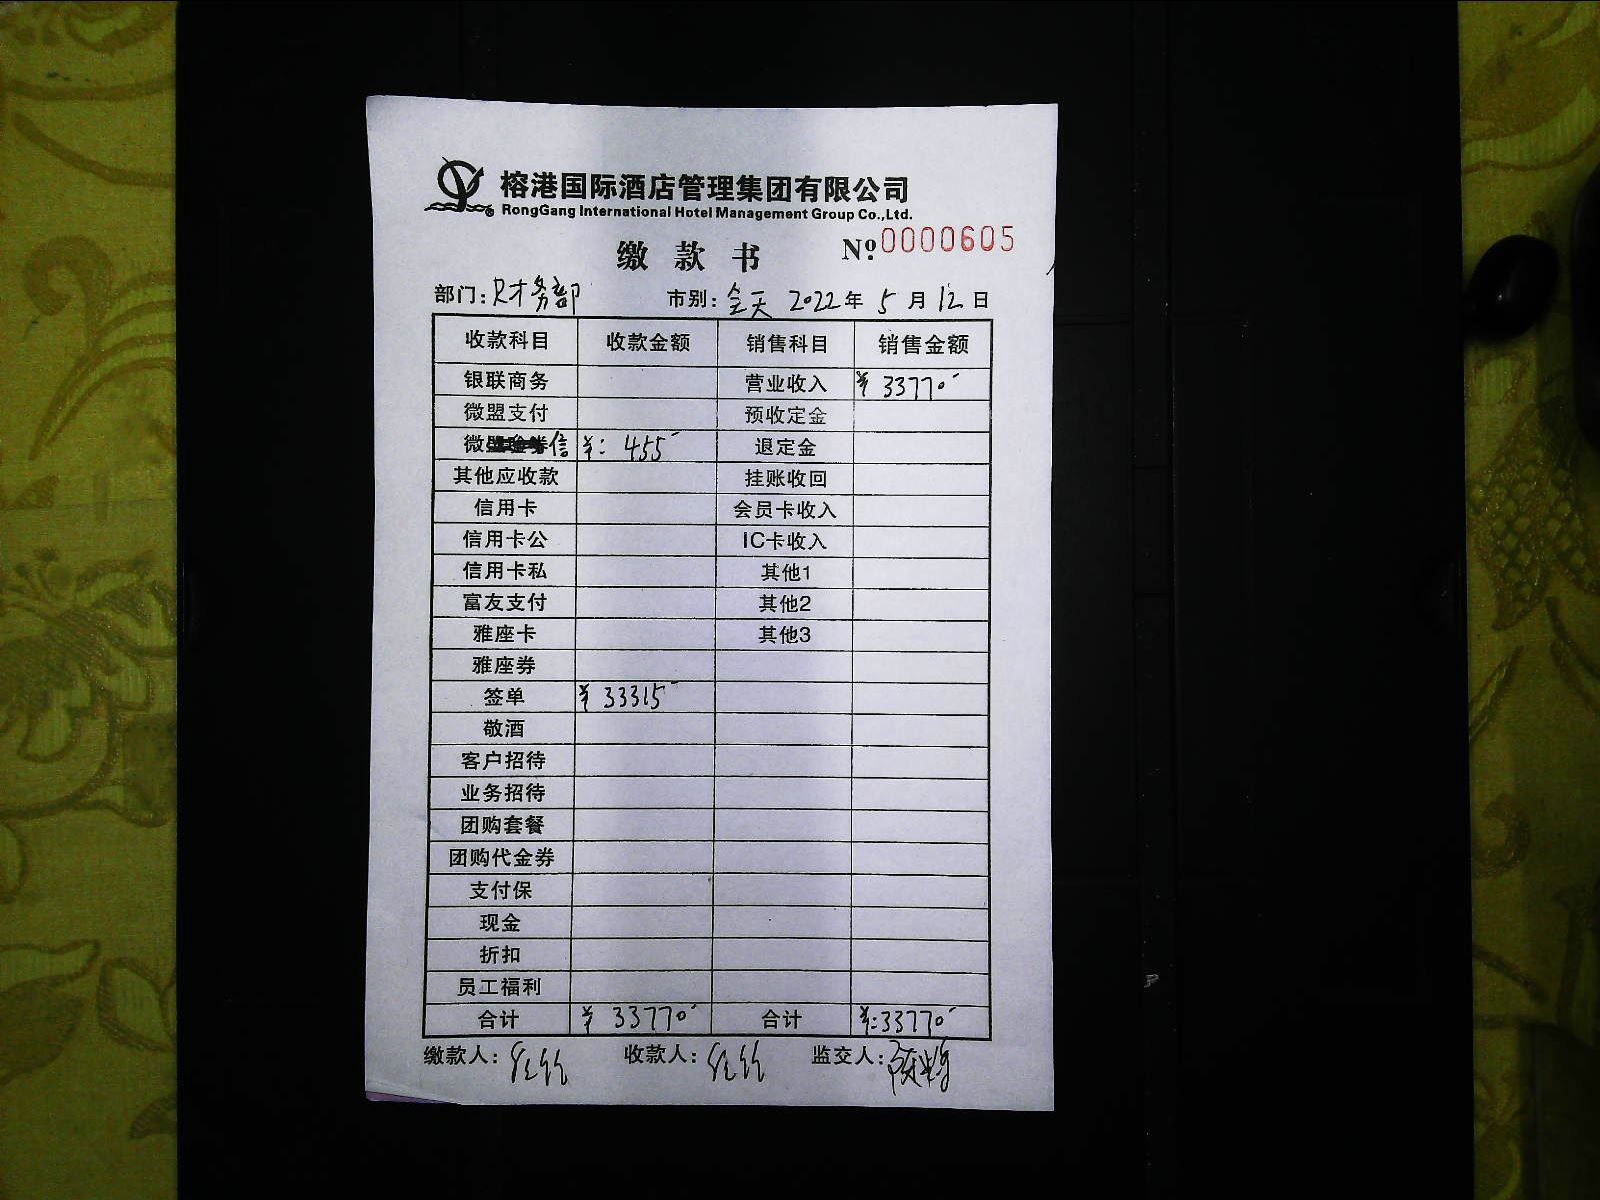 榕港国际酒店管理集团有限公司
RongGang International Hotel Management Group Co.,Ltd.
缴款书 Nº:0000605
部门:财务部 市别:全天 2022年5月12日
收款科目 收款金额 销售科目 销售金额
银联商务 营业收入 ¥33770-
微盟支付 预收定金
微信 ¥:455- 退定金
其他应收款 挂账收回
信用卡 会员卡收入
信用卡公 IC卡收入
信用卡私 其他1
富友支付 其他2
雅座卡 其他3
雅座券
签单 ¥33315-
敬酒
客户招待
业务招待
团购套餐
团购代金券
支付保
现金
折扣
员工福利
合计 ¥33770- 合计 ¥:33770-
缴款人: 收款人: 监交人: